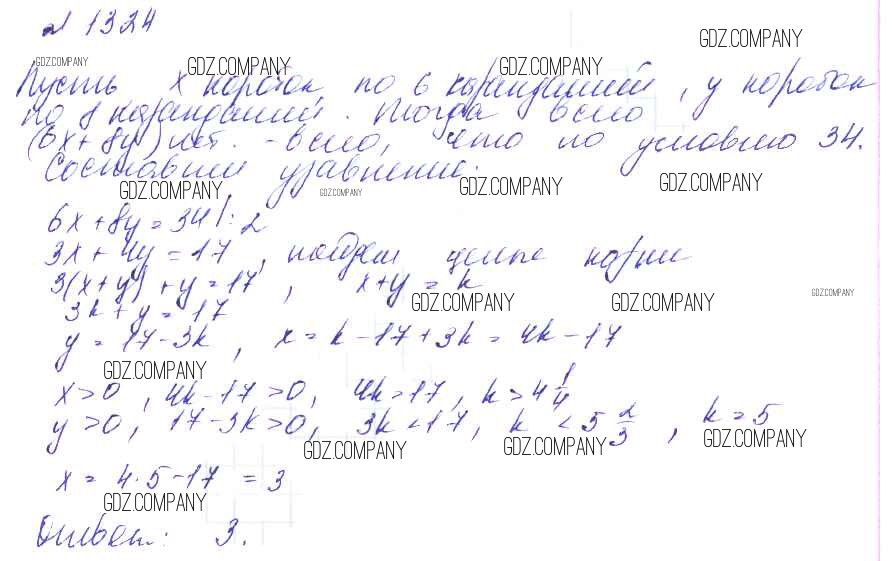 № 1324
GDZ.COMPANY
GDZ.COMPANY GDZ.COMPANY GDZ.COMPANY
Пусть x коробок по 6 карандашей, y коробок
по 8 карандашей. Тогда всего
(6x + 8y) - всего, что по условию 34.
Составим уравнение.
GDZ.COMPANY GDZ.COMPANY GDZ.COMPANY GDZ.COMPANY
6x + 8y = 34 | : 2
3x + 4y = 17, найдем целые корни
3(x + y) + y = 17, x + y = k
GDZ.COMPANY GDZ.COMPANY GDZ.COMPANY
3k + y = 17
y = 17 - 3k, x = k - 17 + 3k = 4k - 17
GDZ.COMPANY
x > 0, 4k - 17 > 0, 4k > 17, k > 4 1/4
y > 0, 17 - 3k > 0, 3k < 17, k < 5 2/3, k = 5
GDZ.COMPANY GDZ.COMPANY GDZ.COMPANY
x = 4 · 5 - 17 = 3
GDZ.COMPANY
Ответ: 3.